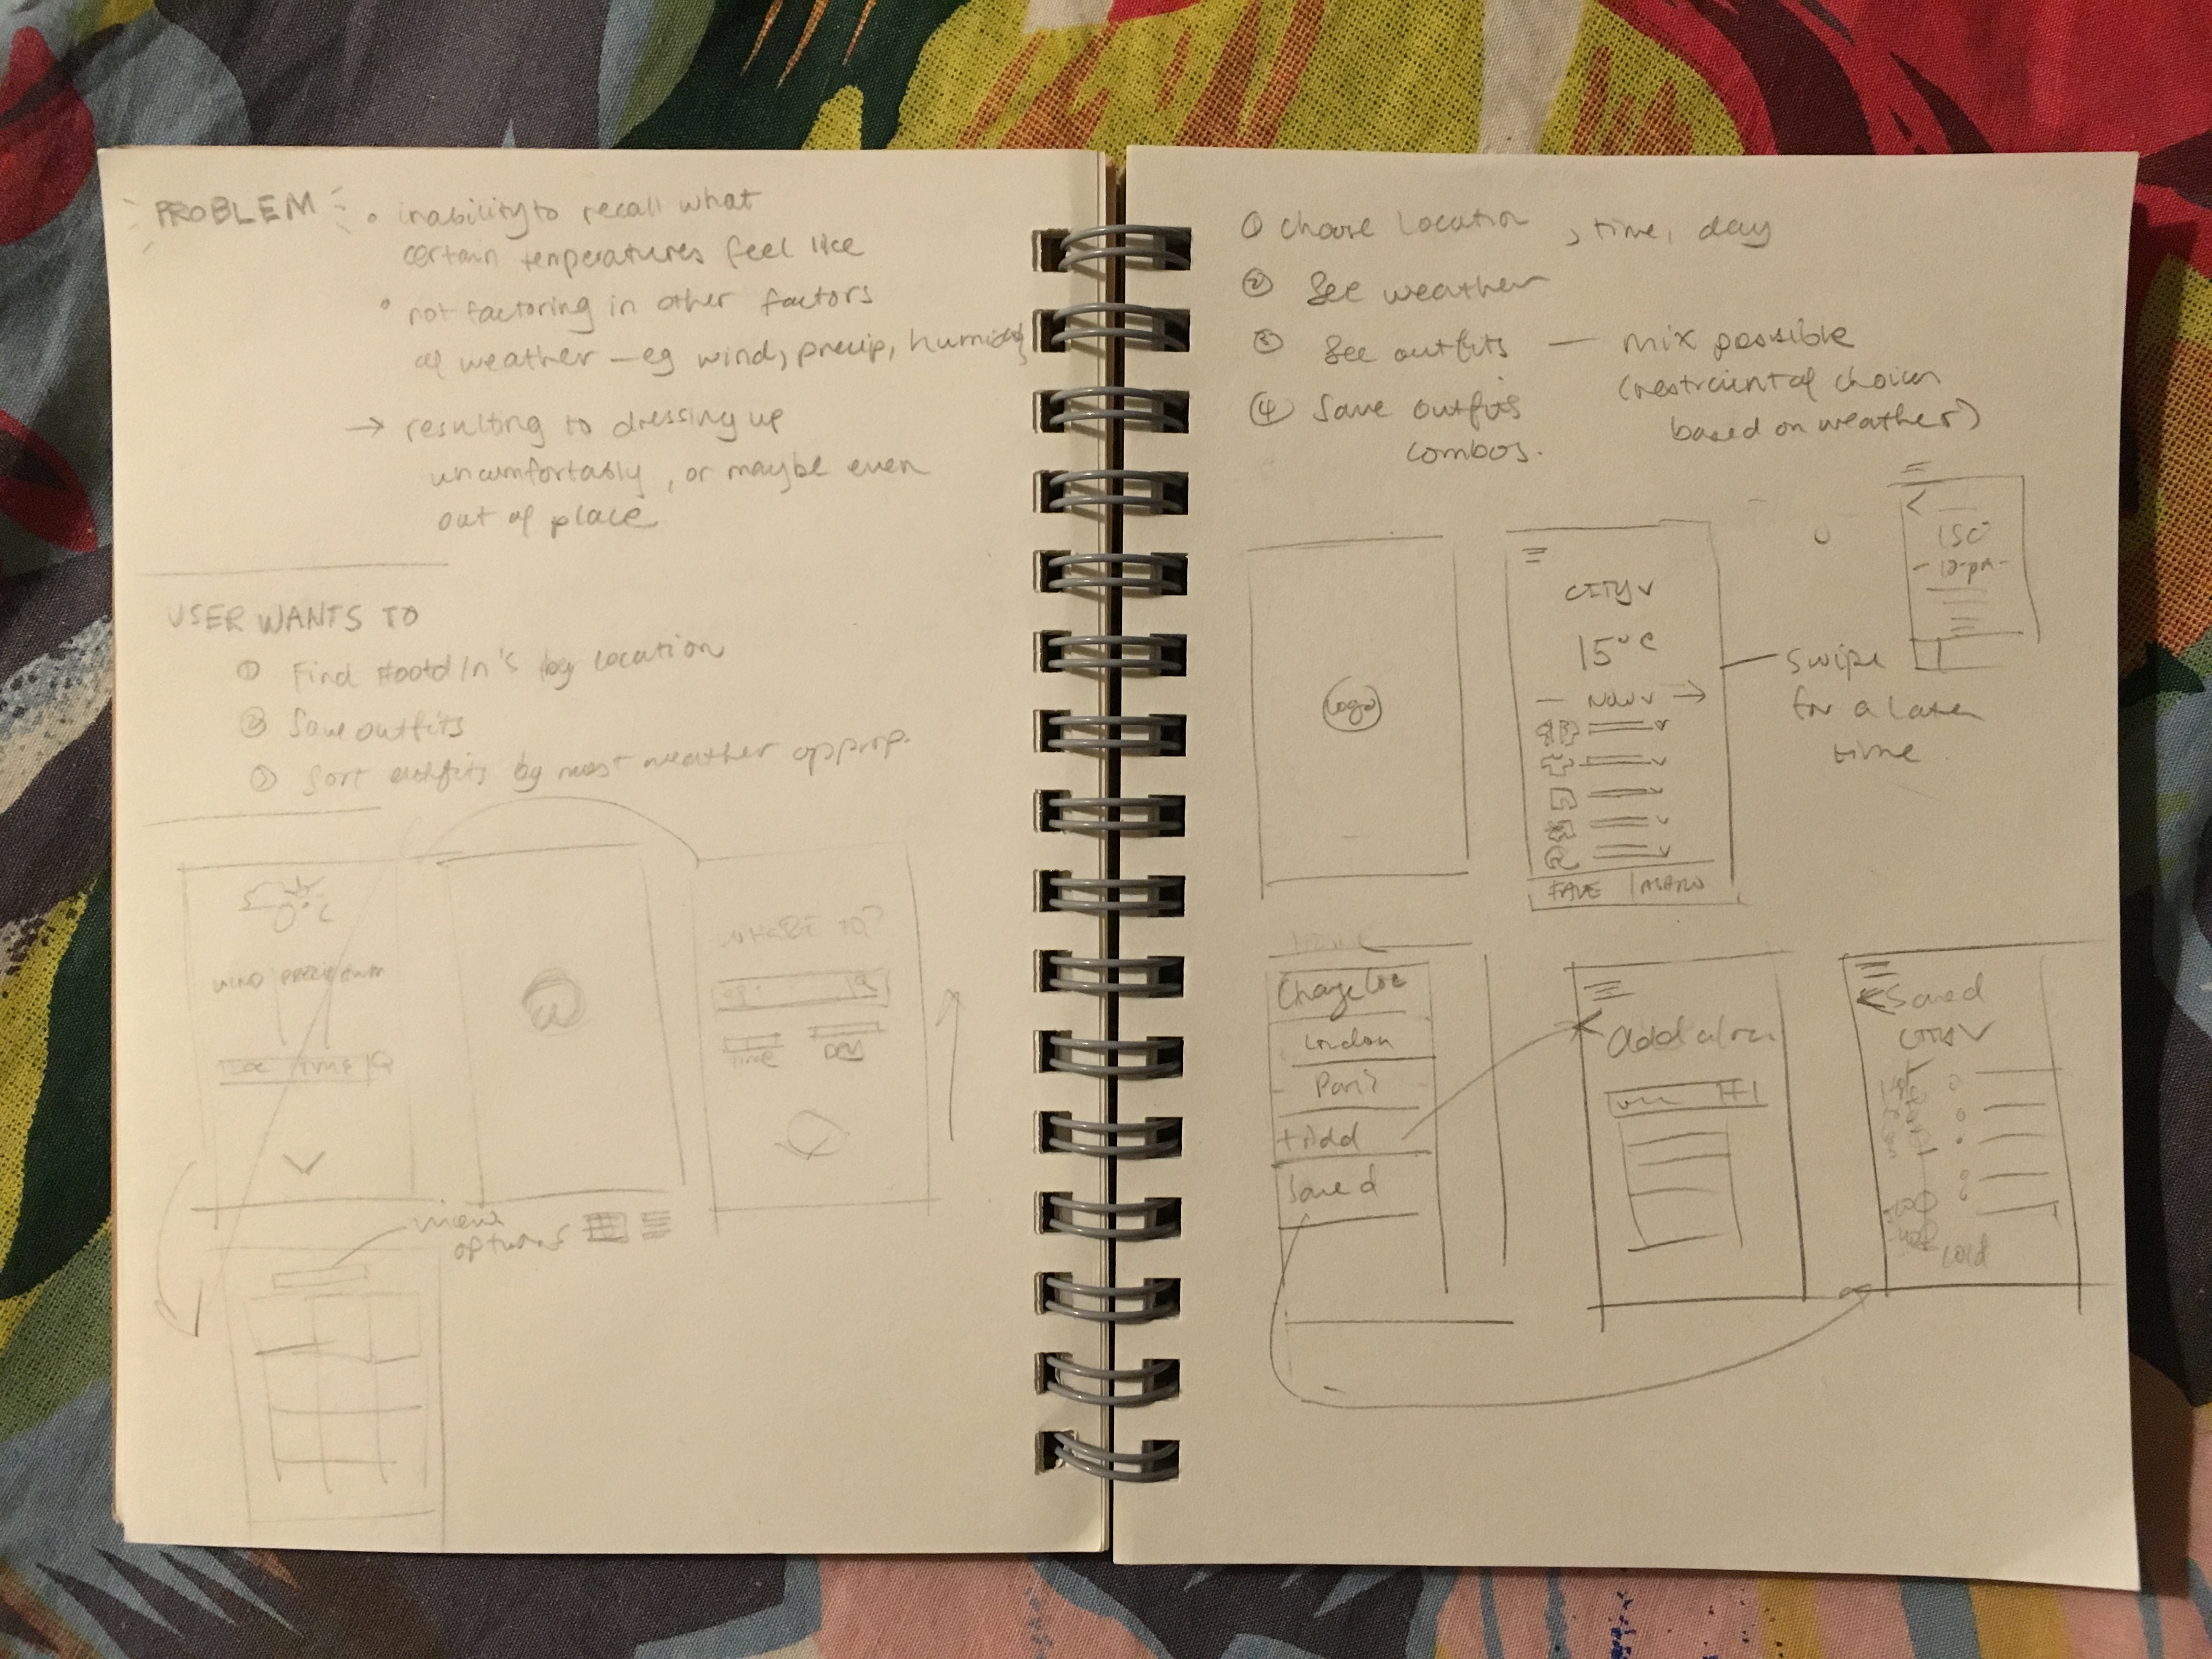 PROBLEM
• inability to recall what
certain temperatures feel like
• not factoring in other factors
of weather — eg wind, precip, humidity
→ resulting to dressing up
uncomfortably, or maybe even
out of place
USER WANTS TO
① Find #ootd/n's by location
② Save outfits
③ Sort outfits by most weather approp.
WIND PRECIP
TIME
WHERE TO?
TIME DAY
view
options
① Choose location, time, day
② See weather
③ See outfits — mix possible
(restraint of choices
based on weather)
④ Save outfits
combos.
logo
CITY ∨
15°C
— NOW ∨ →
FAVE
swipe
for a later
time
15C
- 12pm -
Change loc
London
Paris
+ Add
Saved
Add a loc
< Saved
CITY ∨
cold